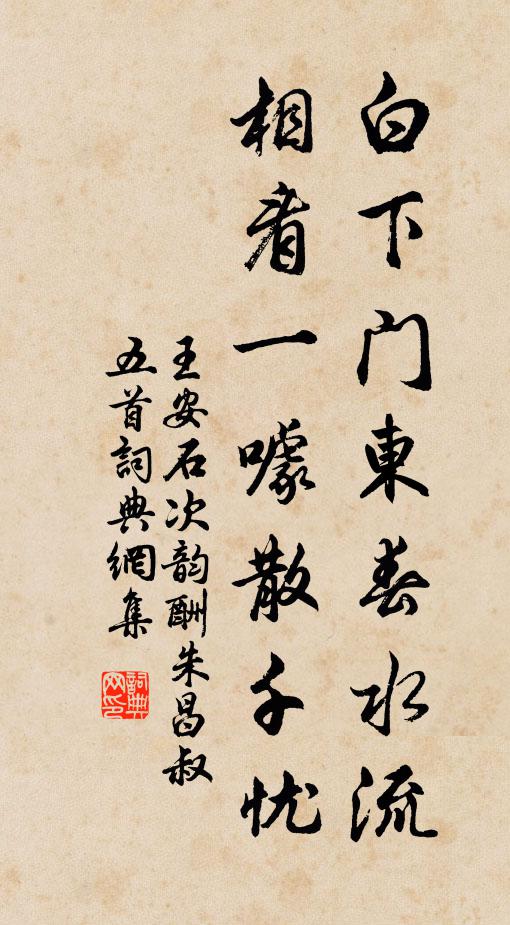 白下門東春水流
相看一噱散千忧
王安石次韵酬朱昌叔
五首詞典網集
詞典网印